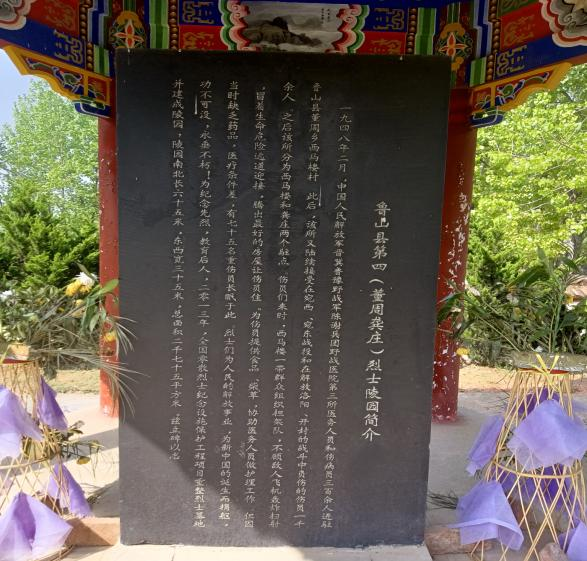 鲁山县第四（董周龚庄）烈士陵园简介
一九四八年二月，中国人民解放军晋冀鲁豫野战军陈谢兵团野战医院第三所医务人员和伤病员三百余人进驻
鲁山县董周乡西马楼村 此后，该所又陆续接受在宛西、宛东战役和在解放洛阳、开封的战斗中负伤的伤员一千
余人 之后该所分为西马楼和龚庄两个驻点 伤员们来时，西马楼一带群众组织担架队，不顾敌人飞机轰炸扫射
，冒着生命危险远道迎接，腾出最好的房屋让伤员住，为伤员提供食品 柴草，协助医务人员做护理工作 但因
当时缺乏药品，医疗条件差，有七十五名重伤员长眠于此 烈士们为人民的解放事业，为新中国的诞生而捐躯，
功不可没，永垂不朽！为纪念先烈，教育后人，二零一三年，全国零散烈士纪念设施保护工程项目重整烈士墓地，
并建成陵园，陵园南北长六十五米，东西宽三十五米，总面积二千七十五平方米，兹立碑以志